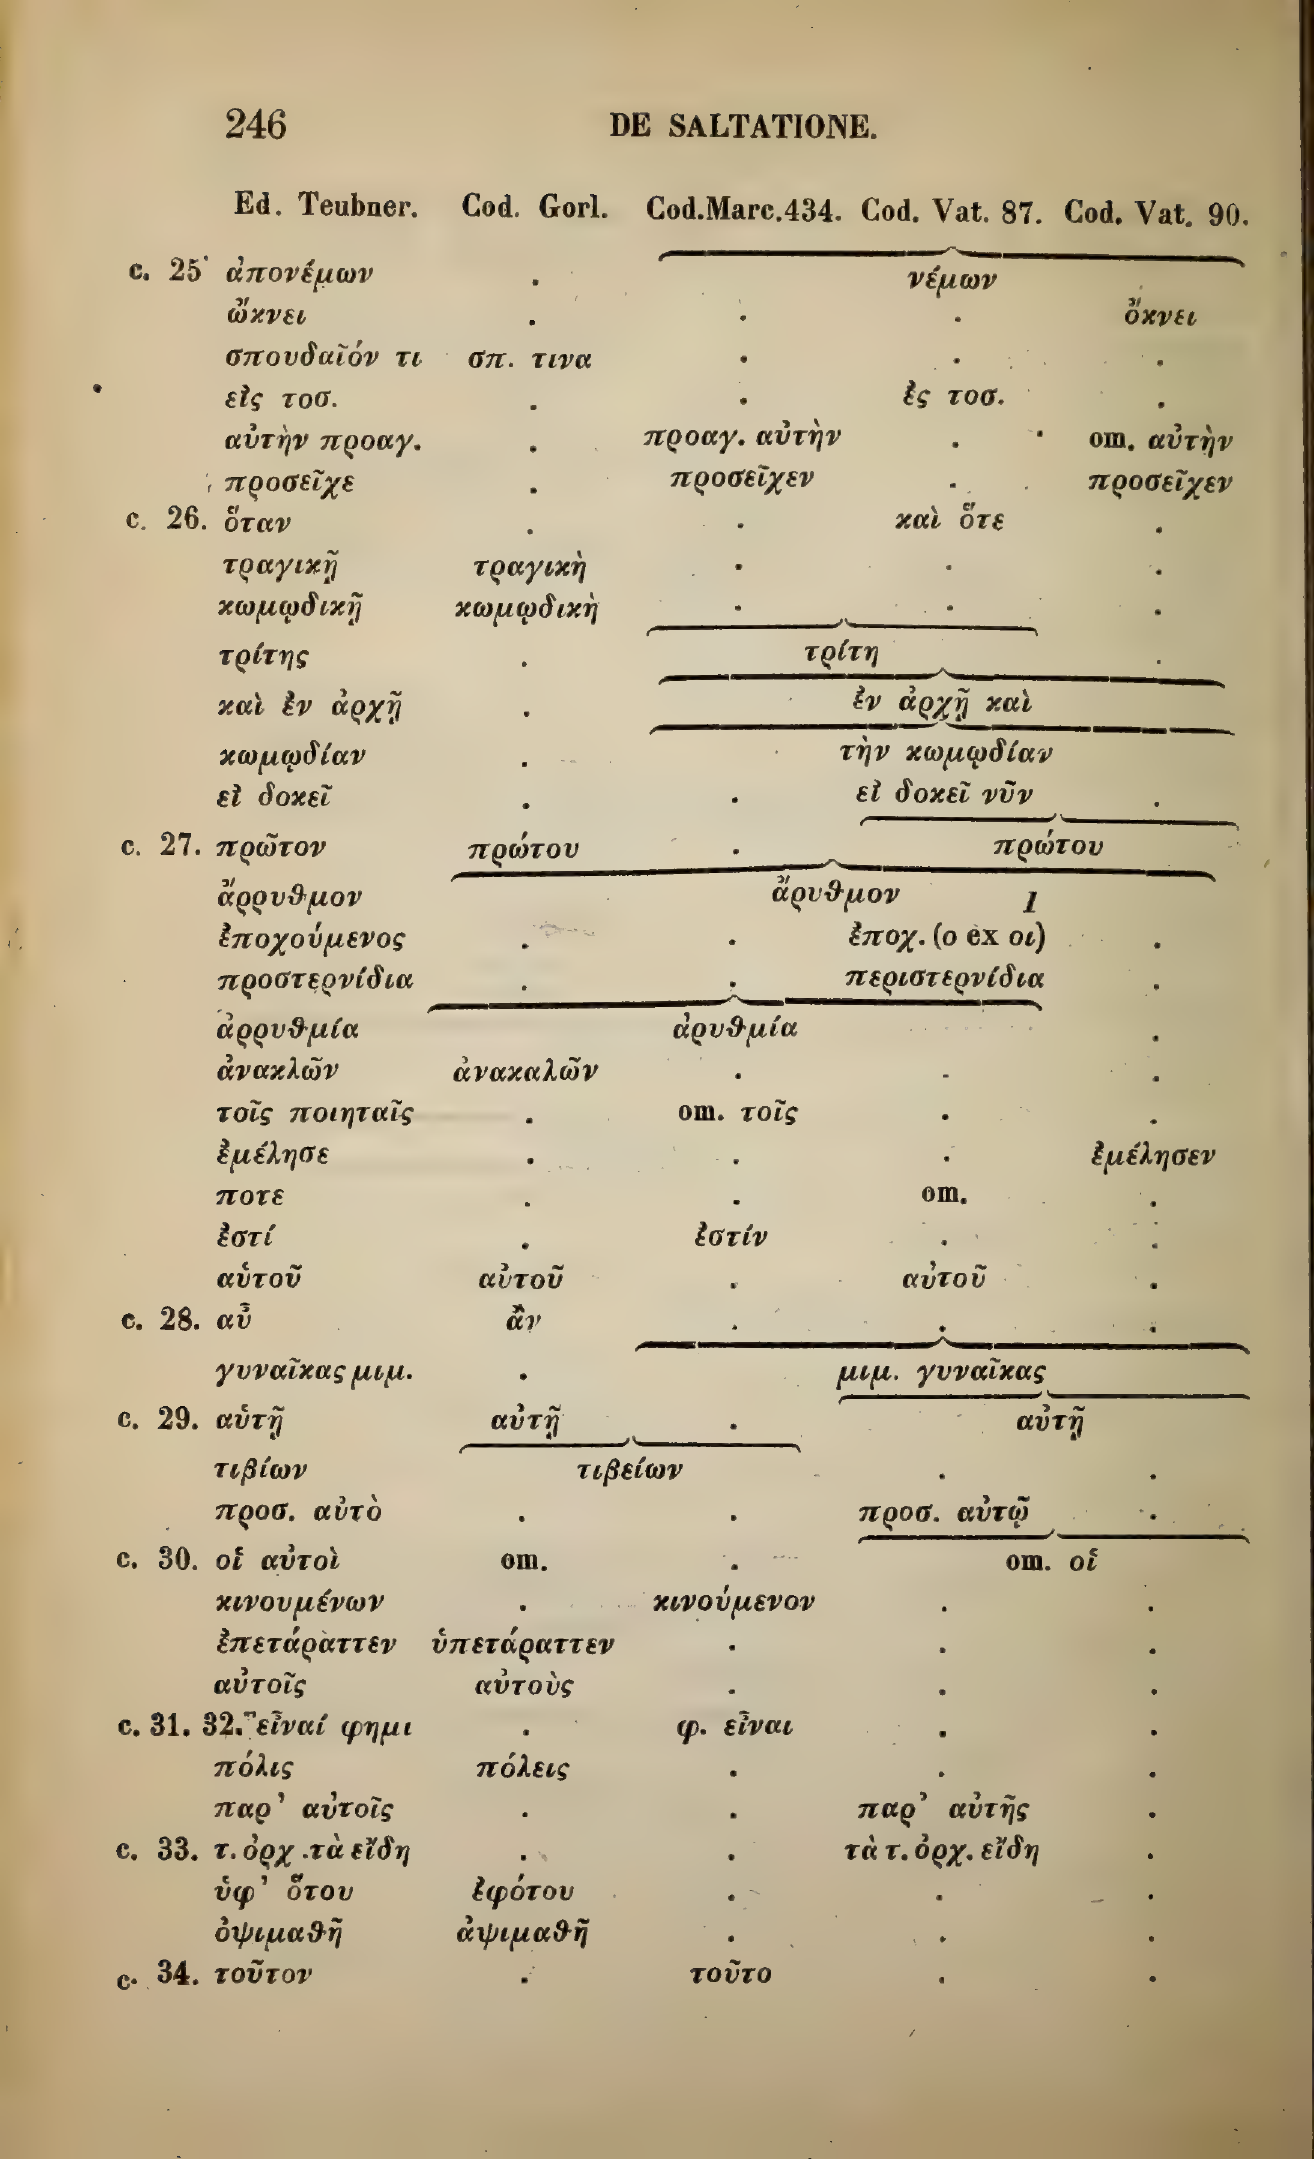 246 DE SALTATIONE.
Ed. Teubner. Cod. Gorl. Cod.Marc.434. Cod. Vat. 87. Cod. Vat. 90.
c. 25 ἀπονέμων . νέμων
ὤκνει . . . ὄκνει
σπουδαῖόν τι σπ. τινα . . .
εἰς τοσ. . . ἐς τοσ. .
αὐτὴν προαγ. . προαγ. αὐτὴν . om. αὐτὴν
προσεῖχε . προσεῖχεν . προσεῖχεν
c. 26. ὅταν . . καὶ ὅτε .
τραγικῇ τραγικὴ . . .
κωμῳδικῇ κωμῳδικὴ . . .
τρίτης . τρίτη .
καὶ ἐν ἀρχῇ . ἐν ἀρχῇ καὶ
κωμῳδίαν . τὴν κωμῳδίαν
εἰ δοκεῖ . . εἰ δοκεῖ νῦν .
c. 27. πρῶτον πρώτου . πρώτου
ἄρρυθμον ἄρυθμον 1
ἐποχούμενος . . ἐποχ. (ο ex οι) .
προστερνίδια . . περιστερνίδια .
ἀρρυθμία ἀρυθμία .
ἀνακλῶν ἀνακαλῶν . . .
τοῖς ποιηταῖς . om. τοῖς . .
ἐμέλησε . . . ἐμέλησεν
ποτε . . om. .
ἐστί . ἐστίν . .
αὑτοῦ αὐτοῦ . αὐτοῦ .
c. 28. αὖ ἂν . . .
γυναῖκας μιμ. . μιμ. γυναῖκας
c. 29. αὑτῇ αὐτῇ . αὐτῇ
τιβίων τιβείων . .
προσ. αὐτὸ . . προσ. αὐτῷ .
c. 30. οἱ αὐτοὶ om. . om. οἱ
κινουμένων . κινούμενον . .
ἐπετάραττεν ὑπετάραττεν . . .
αὐτοῖς αὐτοὺς . . .
c. 31. 32. εἶναί φημι . φ. εἶναι . .
πόλις πόλεις . . .
παρ’ αὐτοῖς . . παρ’ αὐτῆς .
c. 33. τ. ὀρχ. τὰ εἴδη . . τὰ τ. ὀρχ. εἴδη .
ὑφ’ ὅτου ἐφότου . . .
ὀψιμαθῆ ἀψιμαθῆ . . .
c. 34. τοῦτον . τοῦτο . .